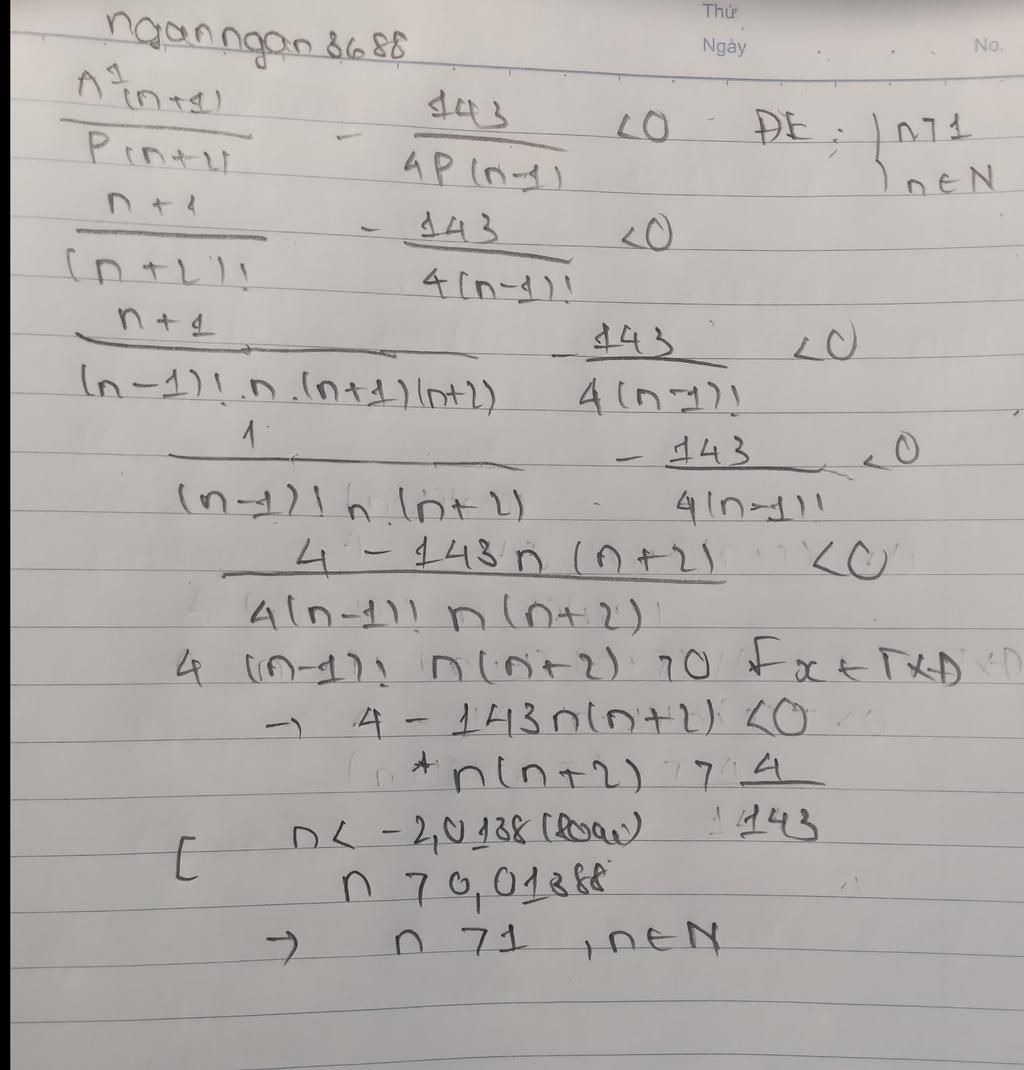 Thứ
Ngày
No.
nganngan3688
A¹(n+1)/P(n+2) - 143/4P(n-1) <0 ĐK: { n>1
n∈N
n+1/(n+2)! - 143/4(n-1)! <0
n+1/(n-1)!.n.(n+1)(n+2) - 143/4(n-1)! <0
1/(n-1)!n.(n+2) - 143/4(n-1)! <0
4 - 143n(n+2)/4(n-1)! n(n+2) <0
4 (n-1)! n(n+2) >0 ∀x ∈ TXĐ
→ 4 - 143n(n+2) <0
* n(n+2) > 4/143
[ n< -2,0138 (loại)
n > 0,01388
→ n >1 , n∈N